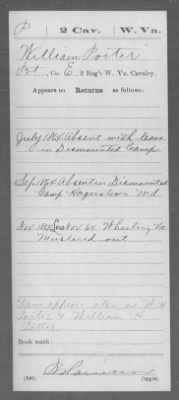 P | 2 Cav. | W. Va.
William Porter
Pvt, Co. E, 2 Reg't W. Va. Cavalry.
Appears on Returns as follows:
July 1864 Absent with leave
in Dismounted Camp
Sep 1864 Absent in Dismounted
Camp Hagerstown Md
Nov 1864 Wheeling Va
Mustered out
Name appears also as W. H.
Porter & William H.
Potter
Book mark:
(546) Copyist.